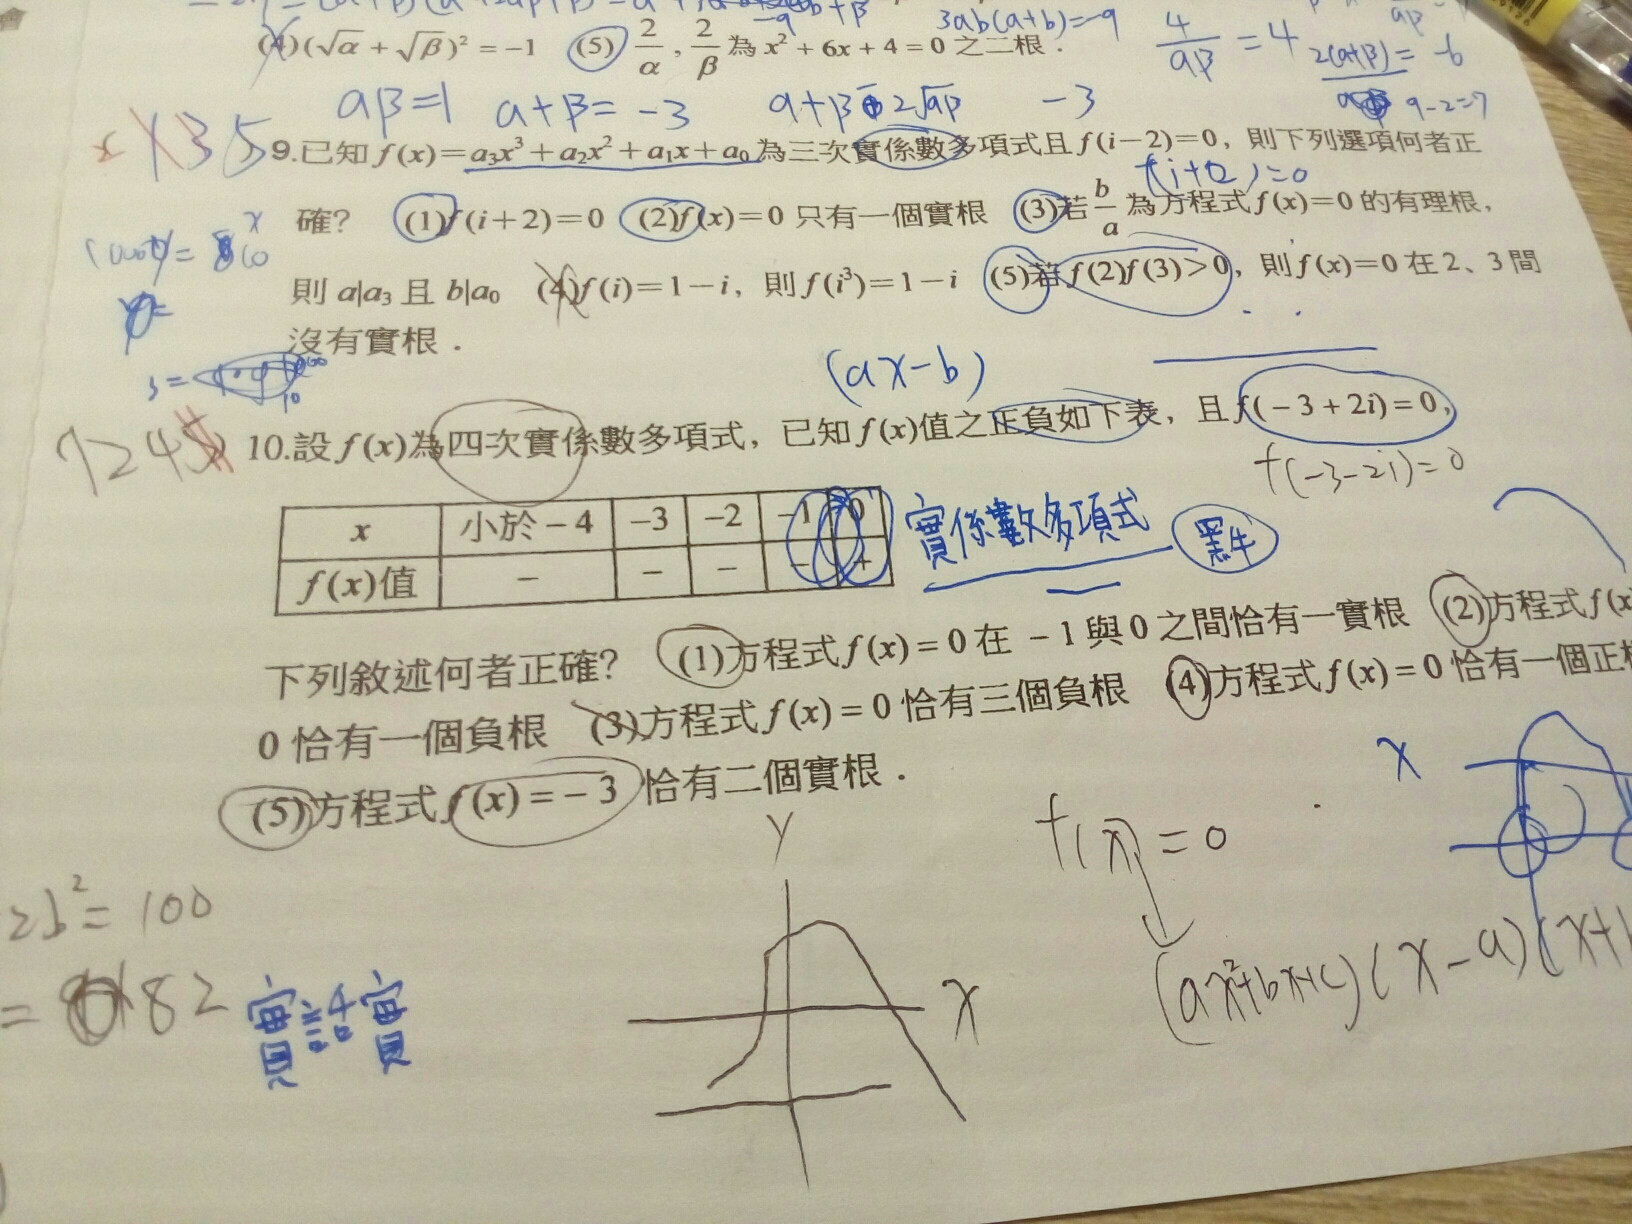 (4)(√α + √β)² = −1 (5) 2/α , 2/β 為 x² + 6x + 4 = 0 之二根．
3ab(a+b)=-9
4/αβ = 4
2(α+β) = -6
αβ=1 α+β= -3
-3
9-2=7
35
9.已知 f(x)=a₃x³+a₂x²+a₁x+a₀ 為三次實係數多項式且 f(i−2)=0，則下列選項何者正
確？ (1)f(i+2)=0 (2)f(x)=0 只有一個實根 (3)若 b/a 為方程式 f(x)=0 的有理根，
則 a|a₃ 且 b|a₀ (4)f(i)=1−i，則 f(i³)=1−i (5)若 f(2)f(3)>0，則 f(x)=0 在 2、3 間
沒有實根．
(ax-b)
1245
10.設 f(x)為四次實係數多項式，已知 f(x)值之正負如下表，且 f(−3+2i)=0，
f(-3-2i)=0
x 小於−4 −3 −2 −1 0
f(x)值 − − − − +
實係數多項式
下列敘述何者正確？ (1)方程式 f(x)=0 在 −1 與 0 之間恰有一實根 (2)方程式 f(x
0 恰有一個負根 (3)方程式 f(x)=0 恰有三個負根 (4)方程式 f(x)=0 恰有一個正根
(5)方程式 f(x)=−3 恰有二個實根．
x
Y
f(x)=0
2b²=100
(ax²+bx+c)(x-a)(x+
= 82
X